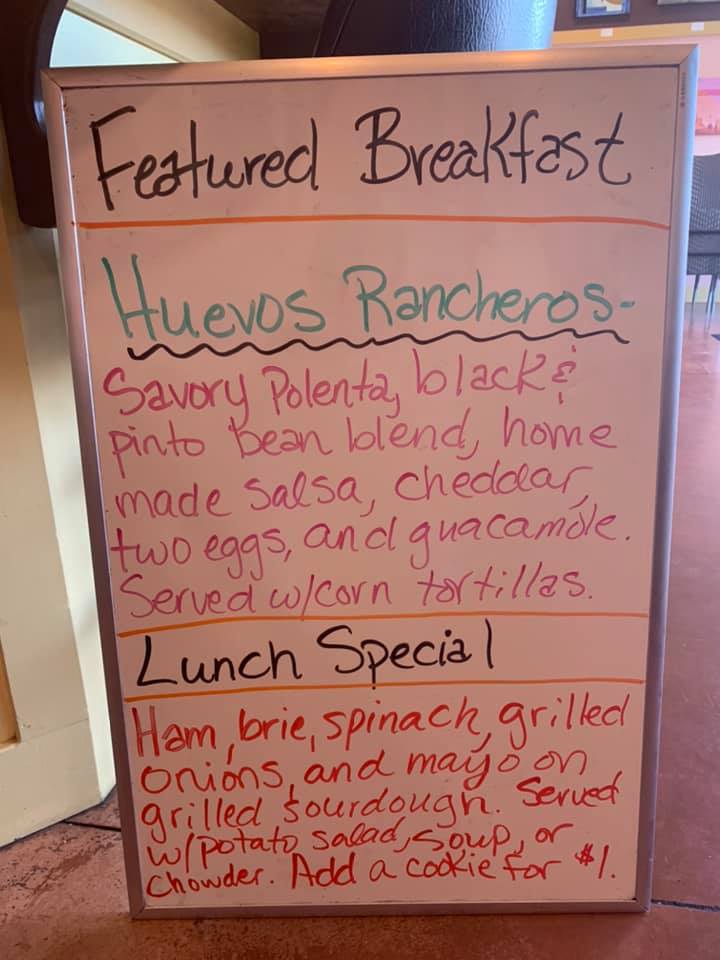 Featured Breakfast
Huevos Rancheros-
Savory Polenta, black &
pinto bean blend, home
made salsa, cheddar,
two eggs, and guacamole.
Served w/corn tortillas.
Lunch Special
Ham, brie, spinach, grilled
onions, and mayo on
grilled sourdough. Served
w/potato salad, soup, or
chowder. Add a cookie for $1.